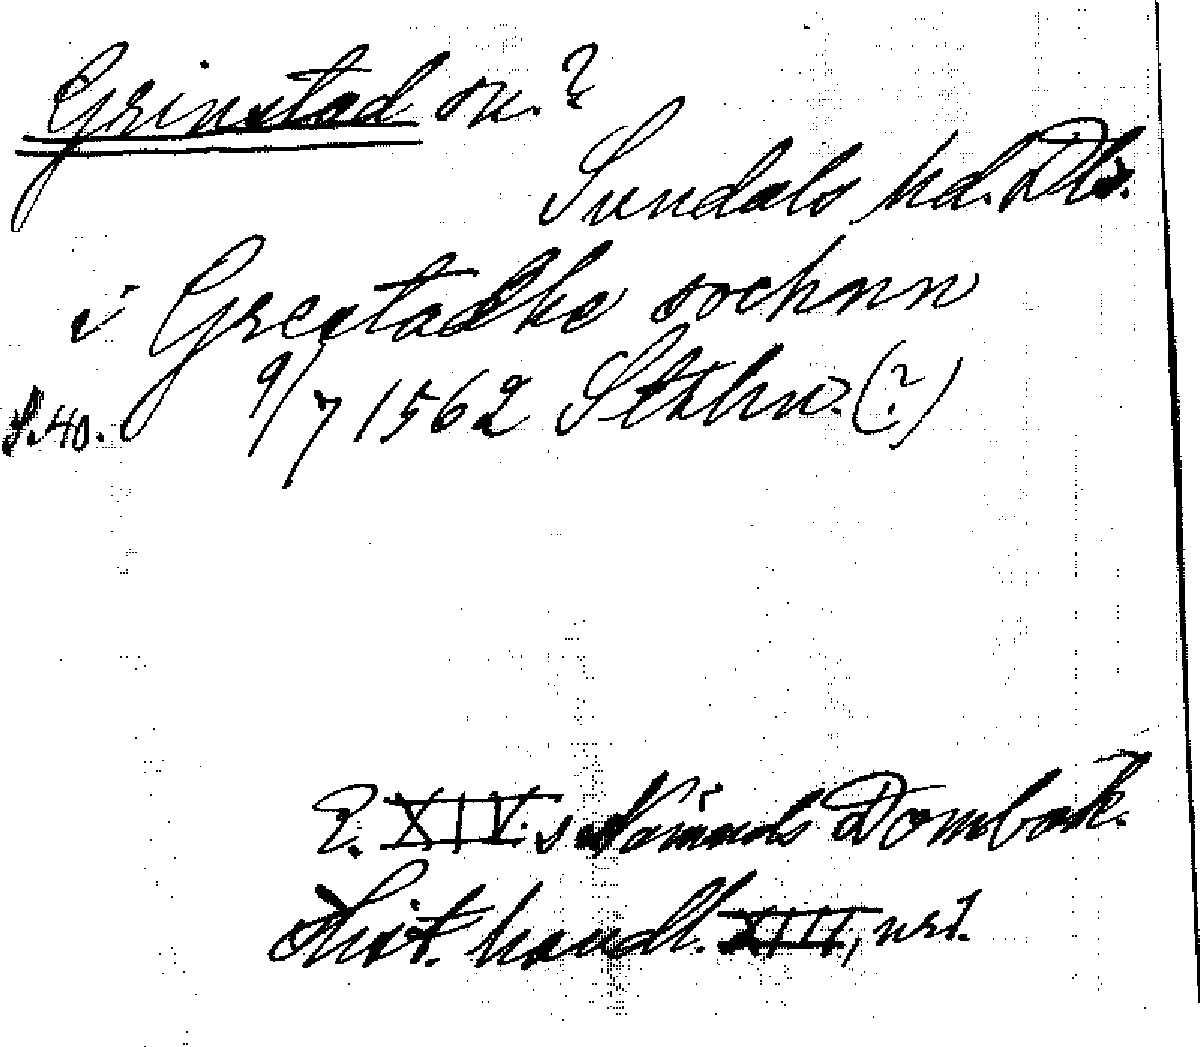 Grinstad sn.?
Sundals hd. Dls.
i Grestadhe sochnn
S. 40. 9/7 1562 Sthlm. (?)
E. XIV:s Nämnds Dombok.
Hist. handl. XIII, nr 1.